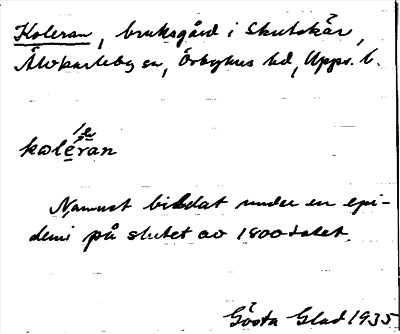 Koleran, bruksgård i Skutskär,
Älvkarleby sn, Örbyhus hd, Upps. l.
koléran
Namnet bildat under en epi-
demi på slutet av 1800-talet.
Gösta Glad 1935